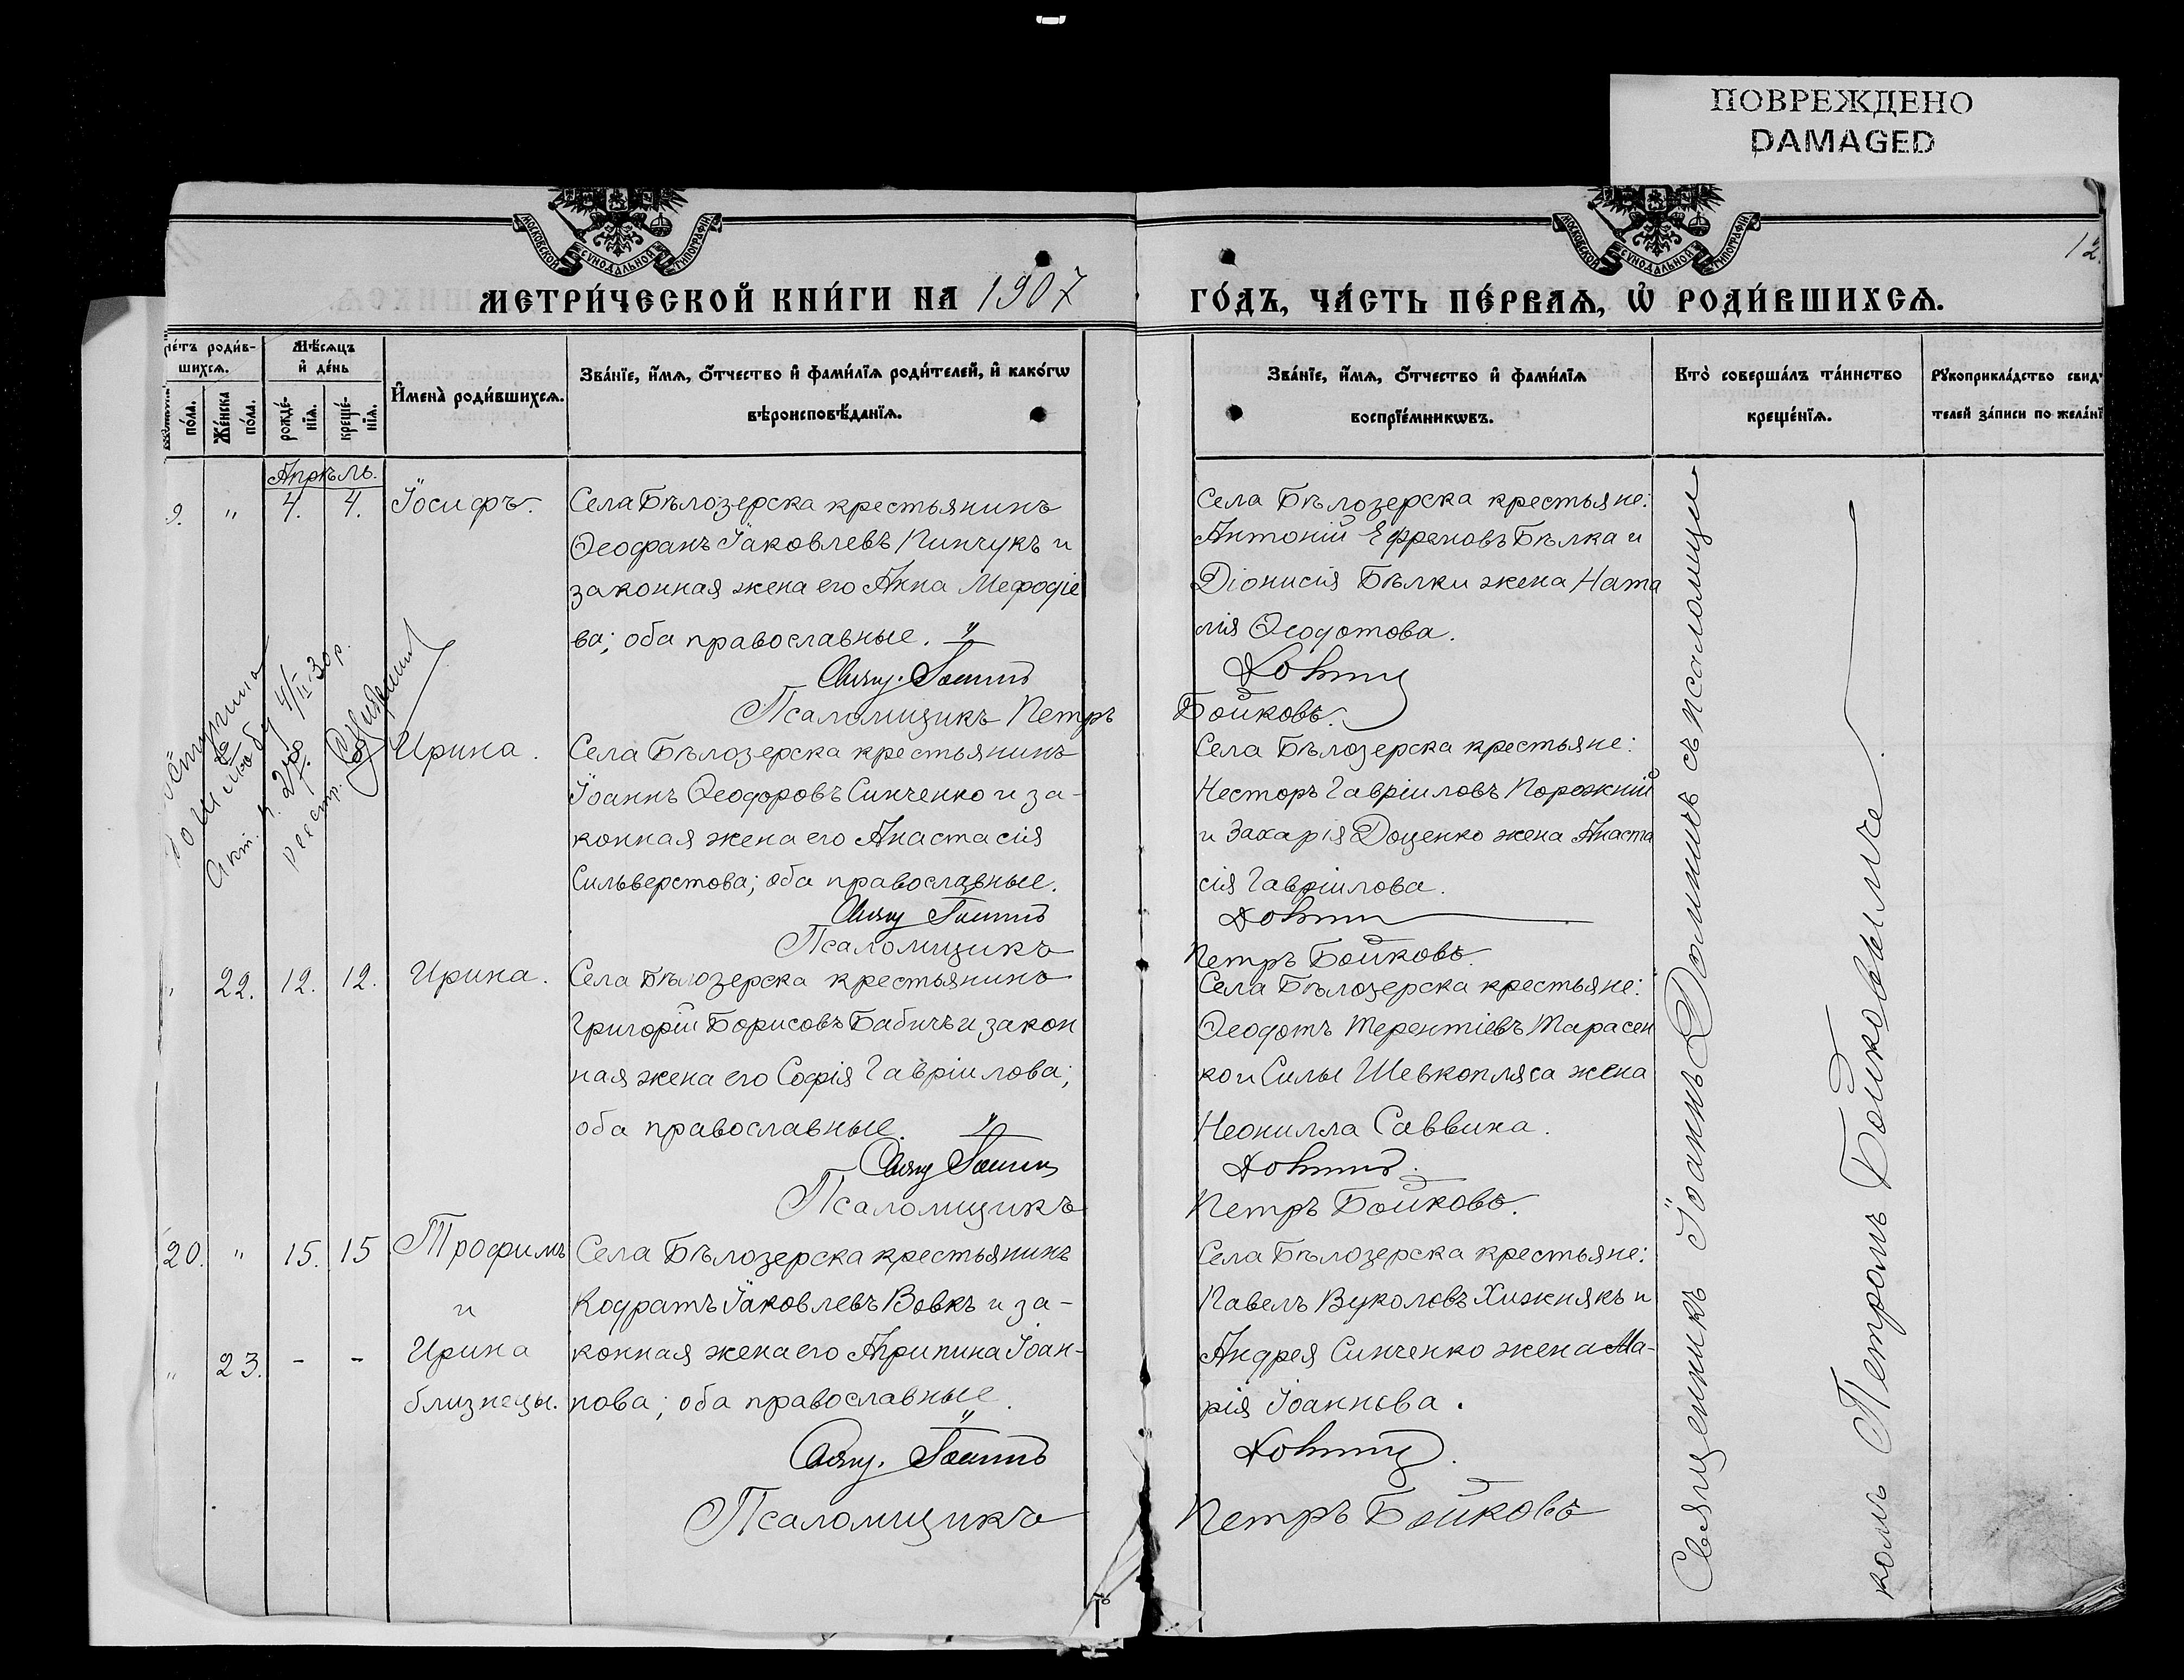 ПОВРЕЖДЕНО
DAMAGED
МОСКОВСКОЙ СѴНОДАЛЬНОЙ ТИПОГРАФІИ
МОСКОВСКОЙ СѴНОДАЛЬНОЙ ТИПОГРАФІИ
12.
МЕТРИ́ЧЕСКОЙ КНИ́ГИ НА 1907
ГО́ДЪ, ЧА́СТЬ ПЕ́РВАЯ, Ѡ҆ РОДИ́ВШИХСЯ.
роди́в-
шихся.
по́ла.
Же́нска
по́ла.
Мѣ́сяцъ
и҆ де́нь
рожде́-
нїя.
креще́-
нїя.
И҆мена̀ роди́вшихся.
Зва́нїе, и҆́мя, ѻ҆́тчество и҆ фами́лїя роди́телей, и҆ како́гѡ
вѣроисповѣ́данїя.
Зва́нїе, и҆́мя, ѻ҆́тчество и҆ фами́лїя
воспрїе́мникѡвъ.
Кто̀ соверша́лъ та́инство
креще́нїя.
Рꙋкоприкла́дство свид
телей за́писи по жела́нї
Апрѣль.
9. " 4. 4. Іосифъ.
Села Бѣлозерска крестьянинъ
Ѳеофанъ Іаковлевъ Пинчукъ и
законная жена его Анна Мефодіе
ва; оба православные.
Свящ. Іоаннъ
Псаломщикъ Петръ
Села Бѣлозерска крестьяне:
Антоній Ефремовъ Бѣлка и
Діонисія Бѣлки жена Ната
лія Ѳеодотова.
Бойковъ.
Ирина.
Села Бѣлозерска крестьянинъ
Іоаннъ Ѳеодоровъ Синченко и за-
конная жена его Анастасія
Сильверстова; оба православные.
Свящ Іоаннъ
Псаломщикъ
Села Бѣлозерска крестьяне:
Несторъ Гавріиловъ Порожній
и Захарія Доценко жена Анаста
сія Гавріилова.
Петръ Бойковъ.
22. 12. 12. Ирина.
Села Бѣлозерска крестьянинъ
Григорій Борисовъ Бабичъ и закон
ная жена его Софія Гавріилова;
оба православные.
Свящ Іоаннъ
Псаломщикъ
Села Бѣлозерска крестьяне:
Ѳеодотъ Терентіевъ Тарасен
ко и Силы Шевкопляса жена
Неонилла Саввина.
Петръ Бойковъ.
20. " 15. 15 Трофимъ
и
" 23. - - Ирина
близнецы.
Села Бѣлозерска крестьянинъ
Кодратъ Іаковлевъ Вовкъ и за-
конная жена его Агрипина Іоан-
нова; оба православные.
Свящ. Іоаннъ
Псаломщикъ
Села Бѣлозерска крестьяне:
Павелъ Вуколовъ Хижнякъ и
Андрея Синченко жена Ма-
рія Іоаннова.
Петръ Бойковъ
Священникъ Іоаннъ съ псаломщи
комъ Петромъ Бойковымъ.